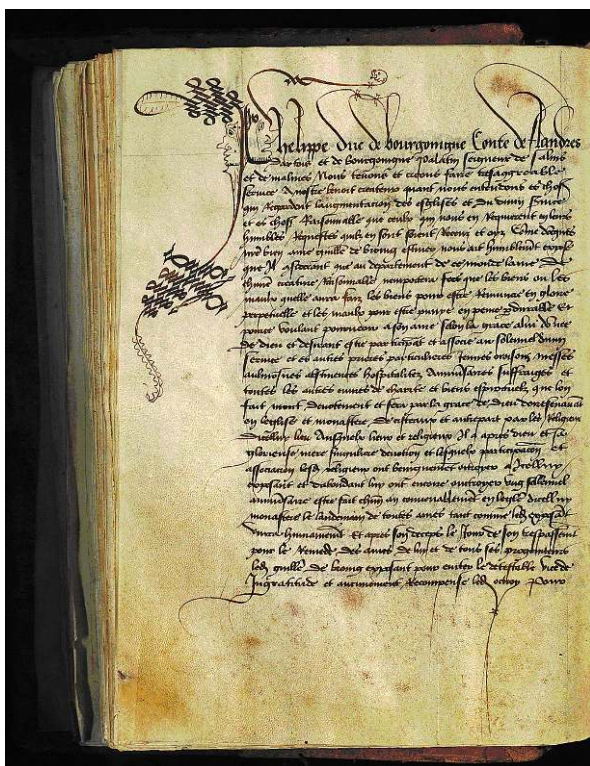 Phelippe duc de bourgoingne Conte de flandres
dartois et de bourgoingne palatin seigneur de salins
et de malines Nous tenons et creons faire tresaggreable
service a nostre benoit createur quant nous entendons es choses
qui regardent laugmentacion des esglises et du divin service
et es choses Raisonnable que ceulx qui nous en Requierent en leurs
humbles Requestes quilz en font soient Receuz et oyz Come doncques
bien ame guille de nous ait humblement expose
que Il que au departement de ce monde lame de
chune creature Raisonnable fors que les biens ou les
maulx quelle aura faiz les biens pour estre Remunere en gloire
perpetuelle et les maulx pour estre punye en peine Et
pource voulant pourveoir a son ame selon la grace
de dieu et desirant estre participant et associe au solemnel divin
service et es autres prieres particulieres Jeunes oroisons messes
aulmosnes abstinences hospitalitez Anniversaires suffraiges et
toutes les autres euvres de charite et biens que lon
fait devotement et fera par la grace de dieu doresenavant
en leglise et monastere de cisteaux et par les Religieux
dicelluy lieu Ausquelz lieu et religieux Il a apres dieu et sa
glorieuse mere singuliere devotion et lesquelz participacion et
association lesd religieux ont benignement ottroye a Icelluy
exposant et dabondant luy ont encore ouctroyer ung sollennel
anniversaire estre fait chun an conventuellement en leglise dicelluy
monastere le landemain de toutes ames tant comme led exposant
vivra humainement Et apres son deceps le Jour de son trespassement
pour le Remede des ames de luy et de tous ses progeniteurs
led guille de exposant pour eviter le detestable vice de
Ingratitude et aucunement Recompense led ottroy Pour